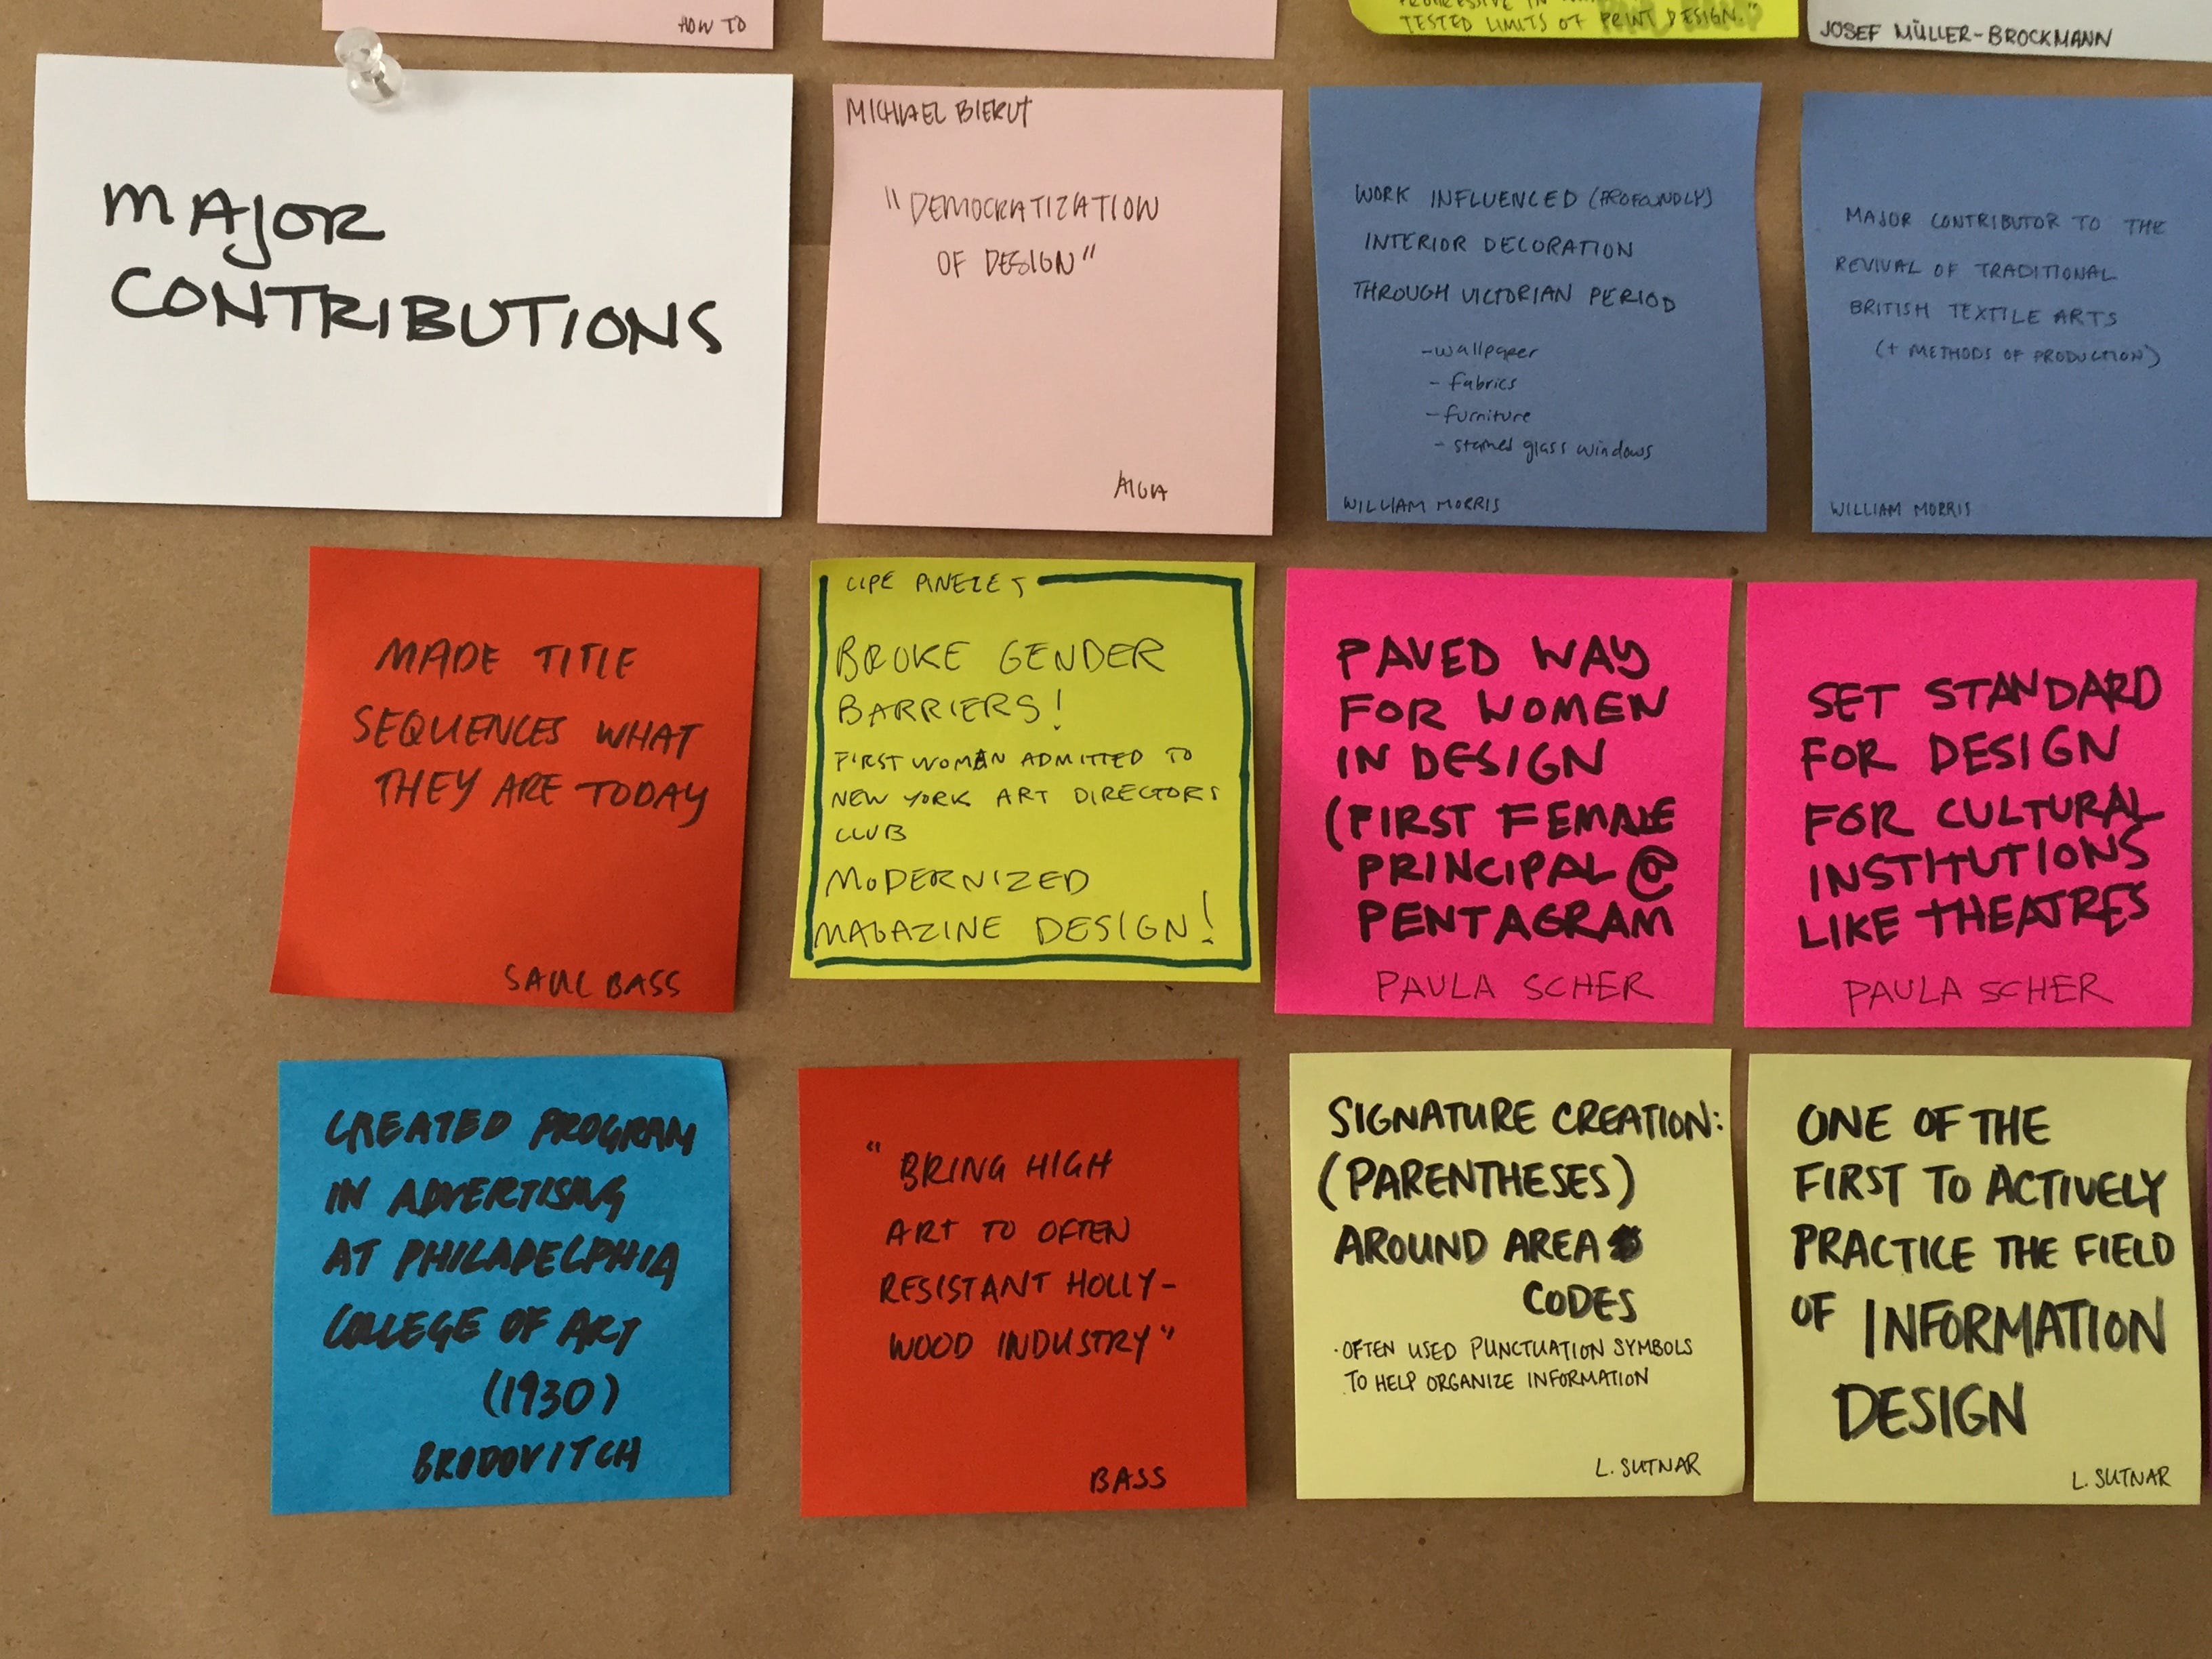 HOW TO
TESTED LIMITS OF PRINT DESIGN."
JOSEF MÜLLER-BROCKMANN
MAJOR
CONTRIBUTIONS
MICHAEL BIERUT
"DEMOCRATIZATION
OF DESIGN"
AIGA
WORK INFLUENCED (PROFOUNDLY)
INTERIOR DECORATION
THROUGH VICTORIAN PERIOD
-wallpaper
- fabrics
- furniture
- stained glass windows
WILLIAM MORRIS
MAJOR CONTRIBUTOR TO THE
REVIVAL OF TRADITIONAL
BRITISH TEXTILE ARTS
(+ METHODS OF PRODUCTION)
WILLIAM MORRIS
MADE TITLE
SEQUENCES WHAT
THEY ARE TODAY
SAUL BASS
CIPE PINELES
BROKE GENDER
BARRIERS!
FIRST WOMAN ADMITTED TO
NEW YORK ART DIRECTORS
CLUB
MODERNIZED
MAGAZINE DESIGN!
PAVED WAY
FOR WOMEN
IN DESIGN
(FIRST FEMALE
PRINCIPAL @
PENTAGRAM
PAULA SCHER
SET STANDARD
FOR DESIGN
FOR CULTURAL
INSTITUTIONS
LIKE THEATRES
PAULA SCHER
CREATED PROGRAM
IN ADVERTISING
AT PHILADELPHIA
COLLEGE OF ART
(1930)
BRODOVITCH
"BRING HIGH
ART TO OFTEN
RESISTANT HOLLY-
WOOD INDUSTRY"
BASS
SIGNATURE CREATION:
(PARENTHESES)
AROUND AREA
CODES
·OFTEN USED PUNCTUATION SYMBOLS
TO HELP ORGANIZE INFORMATION
L. SUTNAR
ONE OF THE
FIRST TO ACTIVELY
PRACTICE THE FIELD
OF INFORMATION
DESIGN
L. SUTNAR